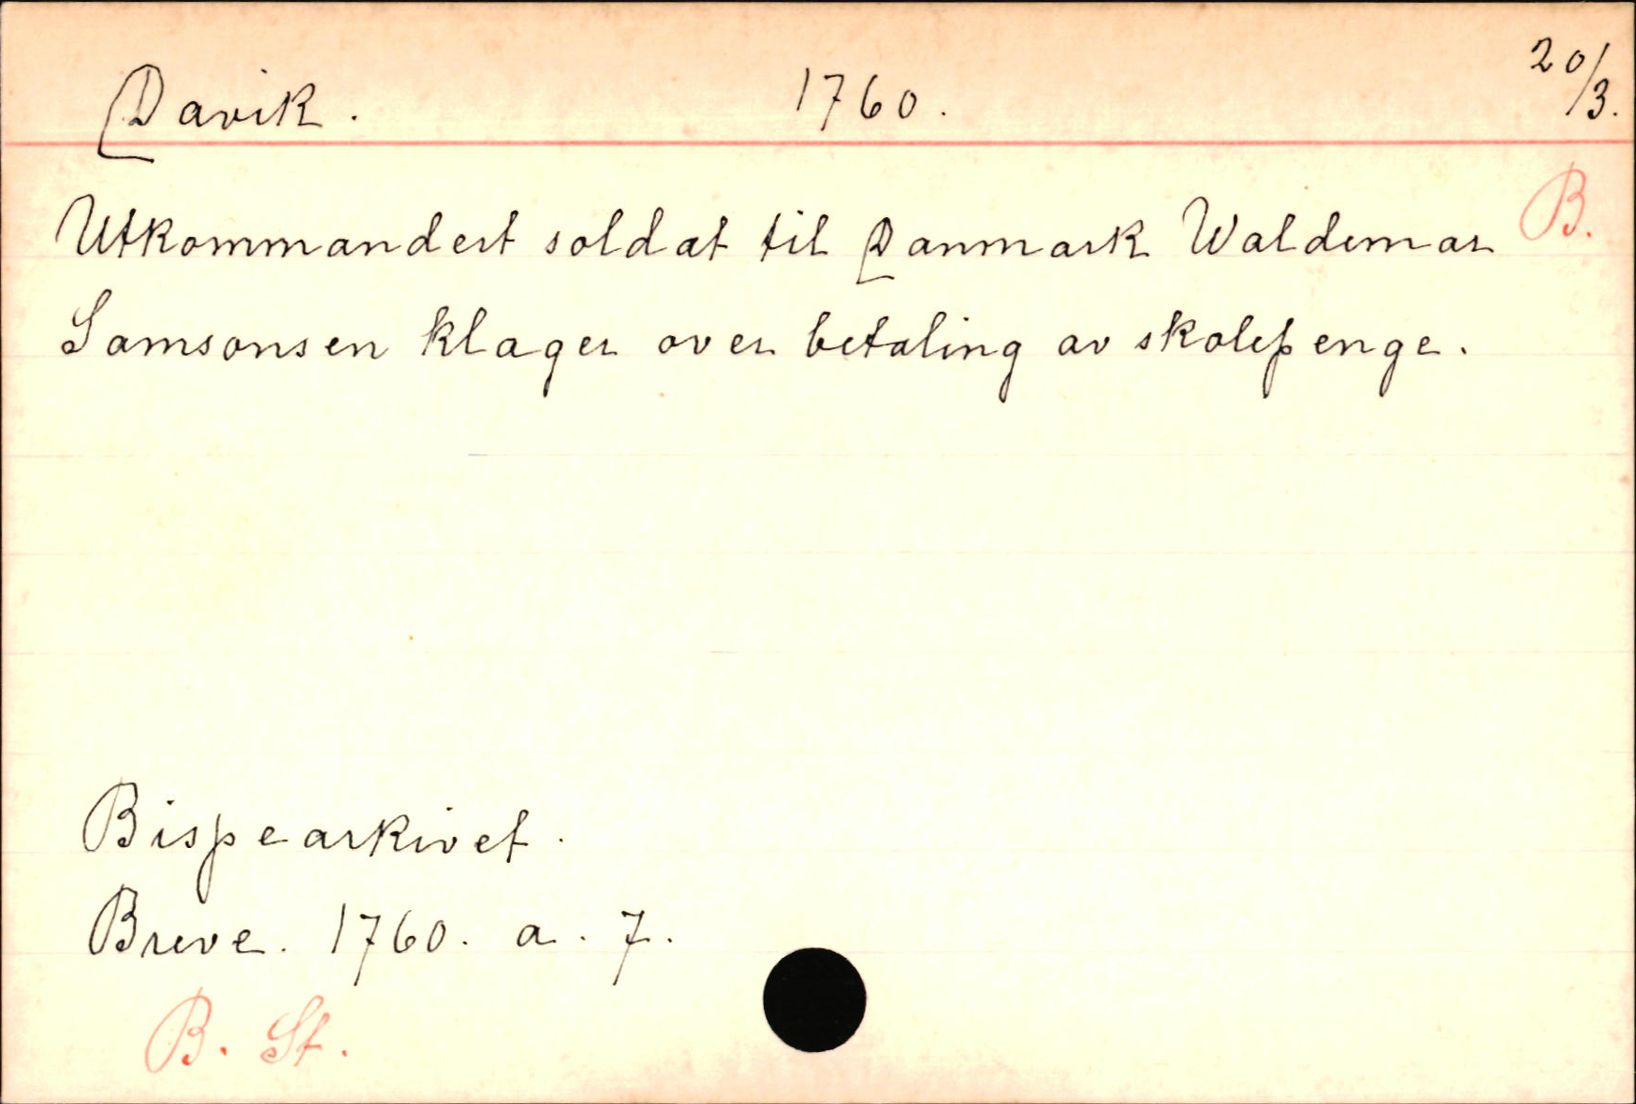 Davik. 1760. 20/3.
B.
Utkommandert soldat til Danmark Waldemar
Samsonsen klager over betaling av skolepenge.
Bispearkivet.
Breve. 1760. a. 7.
B. St.